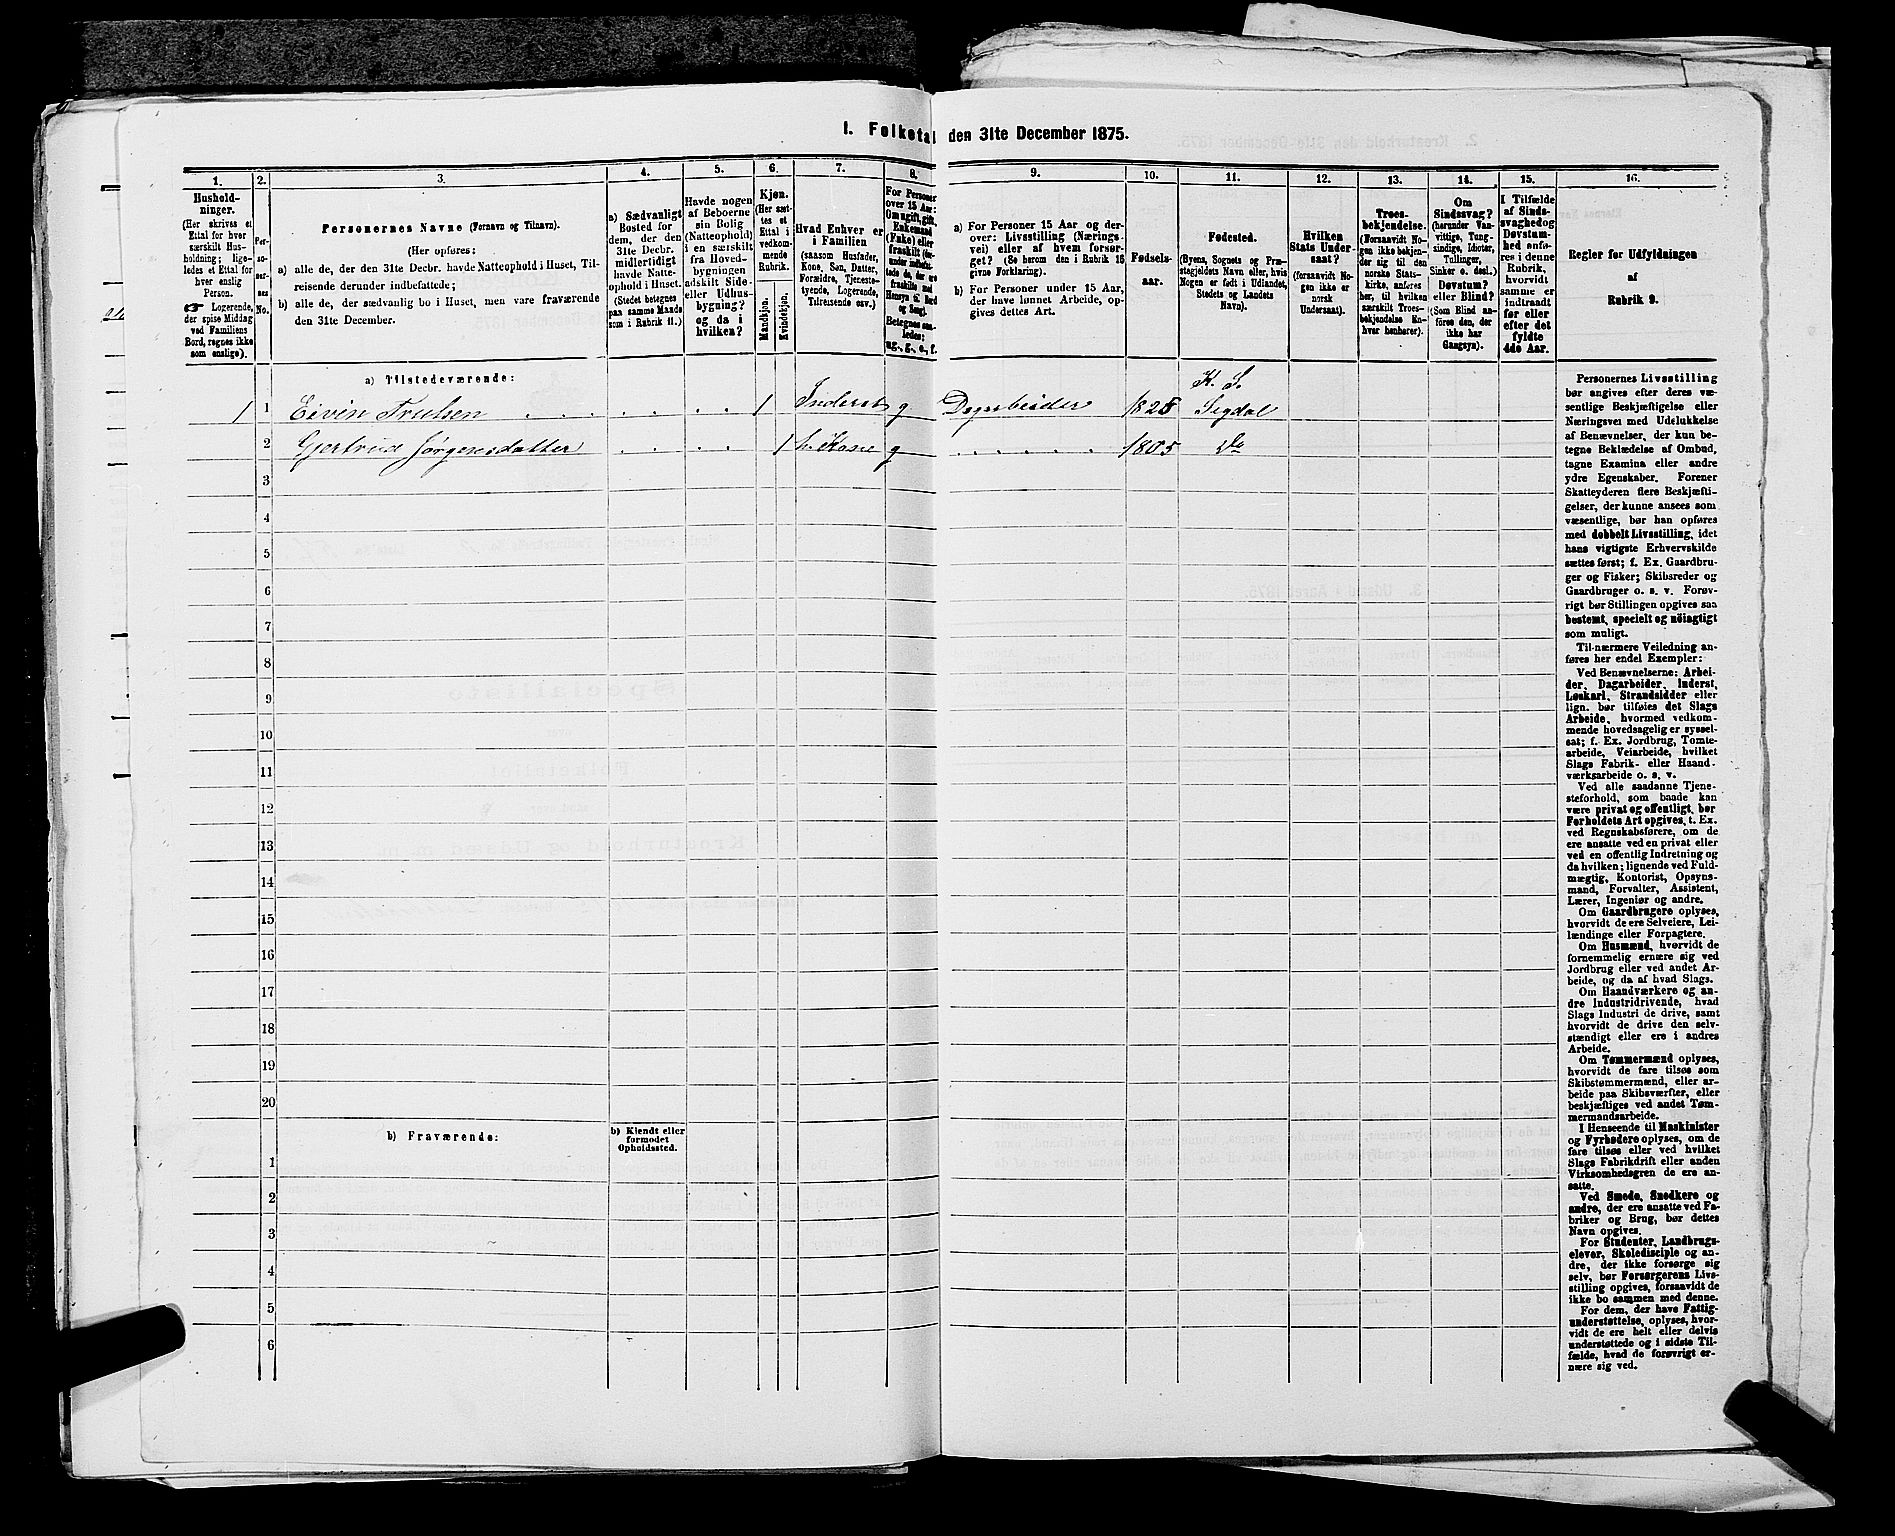 I. Folketal den 31te December 1875.
1.
Hushold-
ninger.
(Her skrives et
Ettal for hver
særskilt Hus-
holdning; lige-
ledes et Ettal for
hver enslig
Person.
☞ Logerende,
der spise Middag
ved Familiens
Bord, regnes ikke
som enslige).
2.
Per-
so-
ner-
nes
No.
3.
Personernes Navne (Fornavn og Tilnavn).
(Her opføres:
a) alle de, der den 31te Decbr. havde Natteophold i Huset, Til-
reisende derunder indbefattede;
b) alle de, der sædvanlig bo i Huset, men vare fraværende
den 31te December.
4.
a) Sædvanligt
Bosted for
dem, der den
31te Decbr.
midlertidigt
havde Natte-
ophold i Huset.
(Stedet betegnes
paa samme Maade
som i Rubrik 11.)
5.
Havde nogen
af Beboerne
sin Bolig
(Natteophold)
i en særskilt
fra Hoved-
bygningen
adskilt Side-
eller Udhus-
bygning?
og da i
hvilken?
6.
Kjøn.
(Her sæt-
tes et
Ettal i
vedkom-
mende
Rubrik.
Mandkjøn.
Kvindekjøn.
7.
Hvad Enhver er
i Familien
(saasom Husfader,
Kone, Søn, Datter,
Forældre, Tjeneste-
tyende, Logerende,
Tilreisende osv.)
8.
For Personer
over 15 Aar:
Om ugift, gift,
Enkemand
(Enke) eller
fraskilt
9.
a) For Personer 15 Aar og der-
over: Livsstilling (Nærings-
vei) eller af hvem forsør-
get? (Se herom den i Rubrik 16
givne Forklaring).
b) For Personer under 15 Aar,
der have lønnet Arbeide, op-
gives dettes Art.
10.
Fødsels-
aar.
11.
Fødested.
(Byens, Sognets og Præ-
stegjeldets Navn eller, hvis
Nogen er født i Udlandet,
Stedets og Landets
Navn).
12.
Hvilken
Stats Under-
saat?
(forsaavidt No-
gen ikke er
norsk
Undersaat).
13.
Troes-
bekjendelse.
(Forsaavidt No-
gen ikke bekjen-
der sig til den
norske Stats-
kirke, anføres
her, til hvilken
særskilt Troes-
bekjendelse En-
hver henhører).
14.
Om
Sindssvag?
(herunder Van-
vittige, Tung-
sindige, Idioter,
Tullinger,
Sinker o. desl.)
Døvstum?
eller Blind?
(Som Blind an-
føres den, der
ikke har
Gangsyn).
15.
I Tilfælde
af Sinds-
svaghed og
Døvstum-
hed anfø-
res i denne
Rubrik,
hvorvidt
samme er
indtraadt
før eller
efter det
fyldte
4de Aar.
16.
Regler for Udfyldningen
af
Rubrik 9.
a) Tilstedeværende:
K. S.
1 1 Eivin Trulsen 1 Inderst g Dagarbeider Sigdal
2 Gjertrud Jørgensdatter 1 h. Kone g 1805 Do
3
4
5
6
7
8
9
10
11
12
13
14
15
16
17
18
19
20
b) Fraværende:
b) Kjendt eller
formodet
Opholdssted.
1
2
3
4
5
6
Personernes Livsstilling
bør angives efter deres væ-
sentlige Beskjæftigelse eller
Næringsvei med Udelukkelse
af Benævnelser, der kun be-
tegne Beklædelse af Ombud,
tagne Examina eller andre
ydre Egenskaber. Forener
Skatteyderen flere Beskjæfti-
gelser, der kunne ansees som
væsentlige, bør han opføres
med dobbelt Livsstilling, idet
hans vigtigste Erhvervskilde
sættes først; f. Ex. Gaardbru-
ger og Fisker; Skibsreder og
Gaardbruger o. s. v. Forøv-
rigt bør Stillingen opgives saa
bestemt, specielt og nøiagtigt
som muligt.
Til nærmere Veiledning an-
føres her endel Exempler:
Ved Benævnelserne: Arbei-
der, Dagarbeider, Inderst,
Løskarl, Strandsidder eller
lign. bør tilføies det Slags
Arbeide, hvormed vedkom-
mende hovedsagelig er syssel-
sat; f. Ex. Jordbrug, Tomte-
arbeide, Veiarbeide, hvilket
Slags Fabrik- eller Haand-
værksarbeide o. s. v.
Ved alle saadanne Tjene-
steforhold, som baade kan
være privat og offentligt, bør
Forholdets Art opgives, t. Ex.
ved Regnskabsførere, om de
ere ansatte ved en privat eller
ved en offentlig Indretning og
da hvilken; lignende ved Fuld-
mægtig, Kontorist, Opsyns-
mand, Forvalter, Assistent,
Lærer, Ingeniør og andre.
Om Gaardbrugere oplyses,
hvorvidt de ere Selveiere, Lei-
lændinge eller Forpagtere.
Om Husmænd, hvorvidt de
fornemmelig ernære sig ved
Jordbrug eller ved andet Ar-
beide, og da af hvad Slags.
Om Haandværkere og an-
dre Industridrivende, hvad
Slags Industri de drive, samt
hvorvidt de drive den selv-
stændigt eller ere i andres
Arbeide.
Om Tømmermænd oplyses,
hvorvidt de fare tilsøs som
Skibstømmermænd, eller ar-
beide paa Skibsværfter, eller
beskjæftiges ved andet Tøm-
mermandsarbeide.
I Henseende til Maskinister
og Fyrbødere oplyses, om de
fare tilsøs eller ved hvilket
Slags Fabrikdrift eller anden
Virksomhedsgren de ere an-
satte.
Ved Smede, Snedkere og
andre, der ere ansatte ved Fa-
briker og Brug, bør dettes
Navn opgives.
For Studenter, Landbrugs-
elever, Skoledisciple og an-
dre, der ikke forsørge sig
selv, bør Forsørgerens Livs-
stilling opgives, forsaavidt de
ikke bo sammen med denne.
For dem, der have Fattig-
understøttelse, oplyses, hvor-
vidt de ere helt eller delvis
understøttede og i sidste Til-
fælde, hvad de forøvrigt er-
nære sig ved.